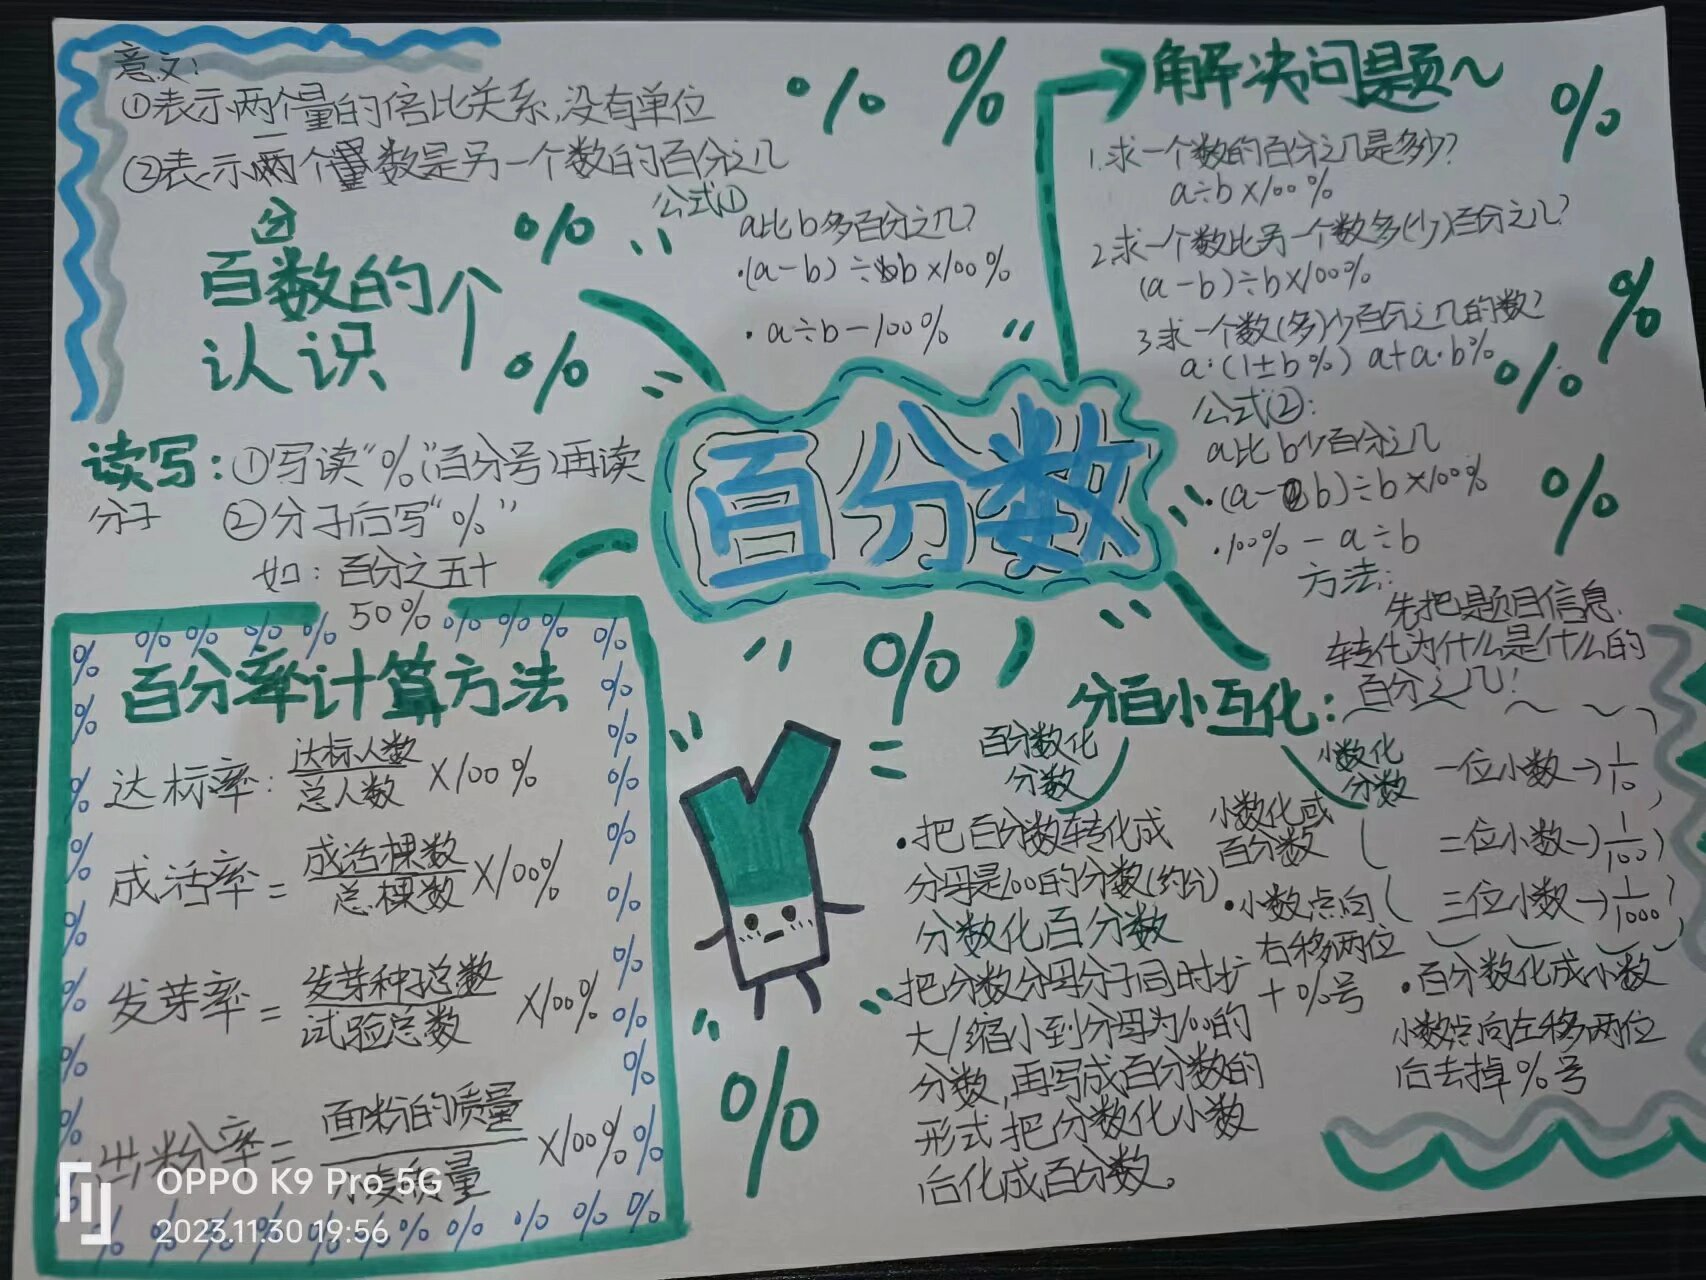 意义:
①表示两个量的倍比关系,没有单位
②表示两个量数是另一个数的百分之几
分
百数的个
认识
读写:①写读“%”(百分号)再读
分子 ②分子后写“%”
如:百分之五十
50%
公式①
a比b多百分之几?
·(a-b)÷b×100%
·a÷b-100%
百分数
解决问题~
1.求一个数的百分之几是多少?
a÷b×100%
2.求一个数比另一个数多(少)百分之几?
(a-b)÷b×100%
3.求一个数(多)少百分之几的数?
a·(1±b%) a+a·b%
公式②:
a比b少百分之几
·(a-b)÷b×100%
·100%-a÷b
方法:
先把题目信息
转化为什么是什么的
百分之几!
百分率计算方法
达标率:达标人数/总人数×100%
成活率=成活棵数/总棵数×100%
发芽率=发芽种子总数/试验总数×100%
出粉率=面粉的质量/小麦质量×100%
分百小互化:
百分数化
分数
·把百分数转化成
分母是100的分数(约分)
分数化百分数
把分数分母分子同时扩
大/缩小到分母为100的
分数,再写成百分数的
形式把分数化小数
后化成百分数。
小数化
分数
一位小数→1/10
二位小数→1/100
三位小数→1/1000
小数化或
百分数
·小数点向
右移两位
+%号
·百分数化成小数
小数点向左移两位
后去掉%号
OPPO K9 Pro 5G
2023.11.30 19:56